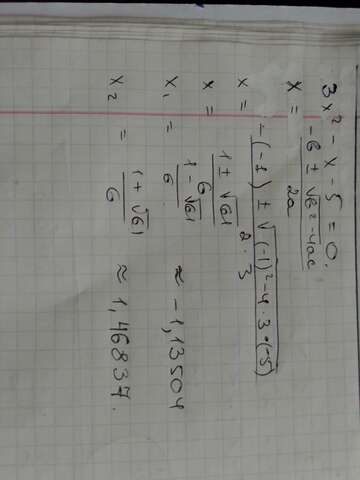 3x² - x - 5 = 0.
x = (-b ± √(b² - 4ac)) / 2a
x = (-(-1) ± √((-1)² - 4 · 3 · (-5))) / 2 · 3
x = (1 ± √61) / 6
x₁ = (1 - √61) / 6 ≈ -1,13504
x₂ = (1 + √61) / 6 ≈ 1,46837.